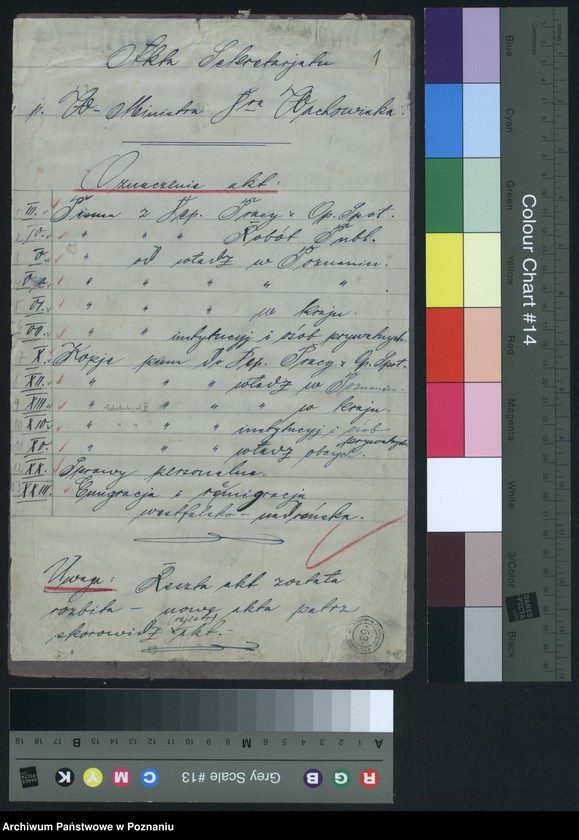 1
Akta Sekretarjatu
p. W- Ministra Dra Wachowiaka.
Oznaczenie akt:
1 III. Pisma z Dep. Pracy i Op. Społ.
2 IV. " " " Robót Publ.
3 V. " od władz w Poznaniu.
V a " " " " "
VI. " " " w kraju.
VII. " " instytucyj i osób prywatnych.
X. Kopje pism do Dep. Pracy i Op. Społ.
XII. " " " władz w Poznaniu.
9 XIII. " " " " w kraju.
10 XIV. " " " instytucyj i osób prywatnych
11 XV. " " " władz obcych.
12 XX. Sprawy personalne.
XXIII. Emigracja i reemigracja
westfalsko-nadreńska.
Uwaga: Reszta akt została
rozbita – nowe akta patrz
skorowidz (rejestr) akt.-
Colour Chart #14
Blue
Cyan
Green
Yellow
Red
Magenta
White
3/Color
Black
Centimetres
Inches
DANES PICTA
19 18 17 16 15 14 13 12 11 10 9 8 7 6 5 4 3 2 1
B M A
K Y M C Grey Scale #13 B G R
Archiwum Państwowe w Poznaniu